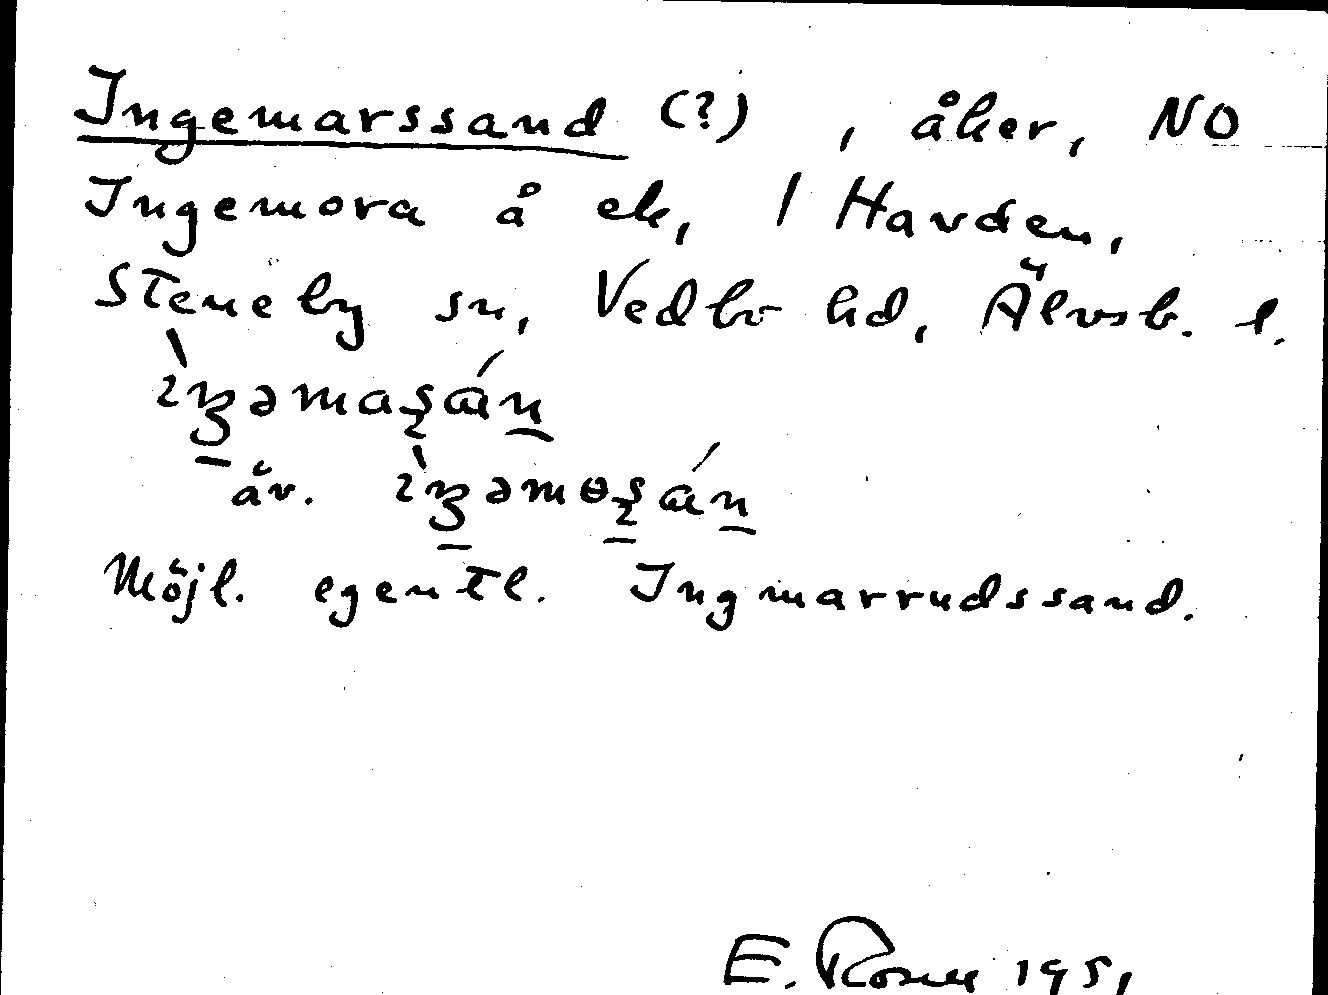 Ingemarssand (?), åker, NO
Ingemora å ek, 1 Havden,
Steneby sn, Vedbo hd, Älvsb. l.
äv.
Möjl. egentl. Ingmarrudssand.
E. Rosell 1951